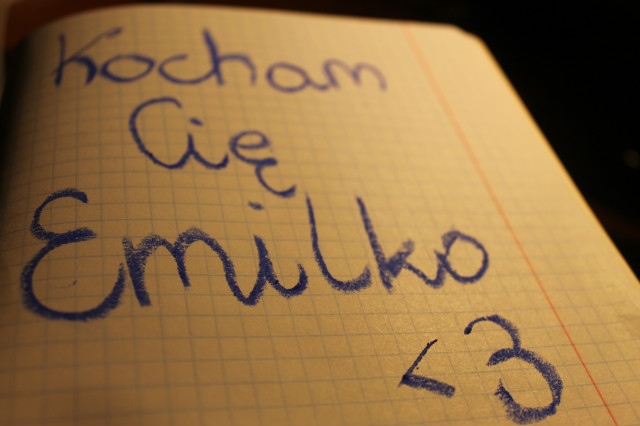 Kocham
Cię
Emilko
<3